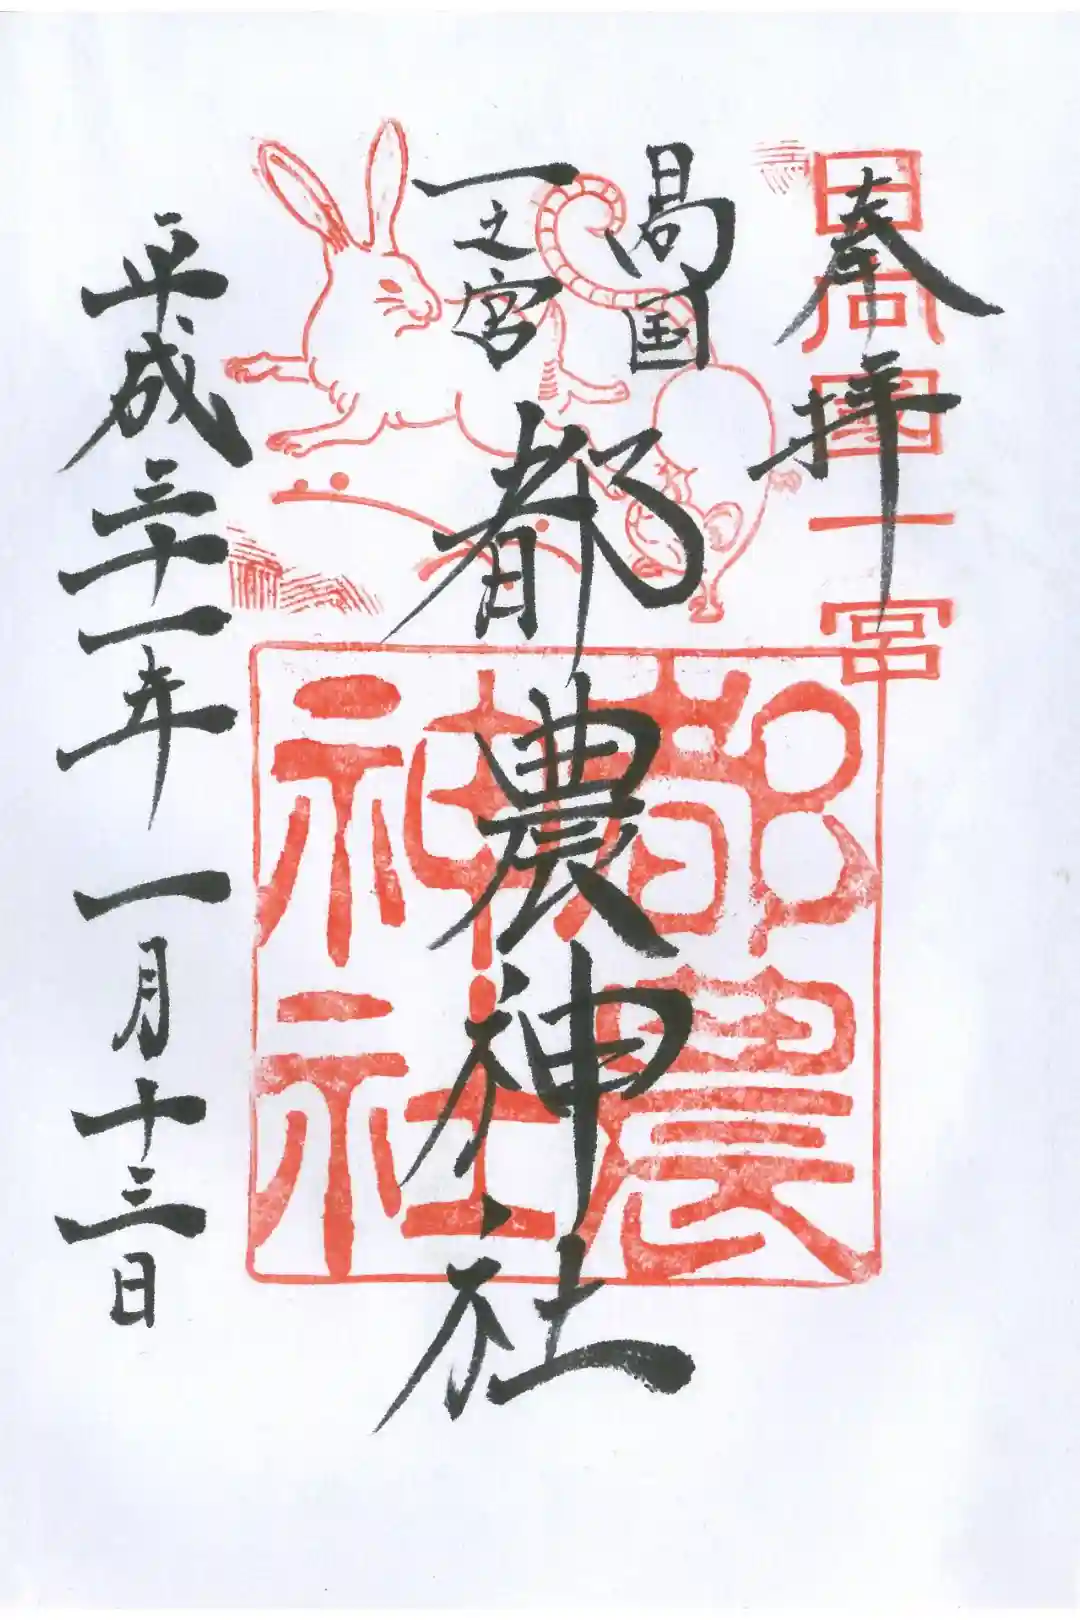 奉拝
日向國一宮
日向国
一之宮
都農神社
都農
神社
平成三十一年一月十三日